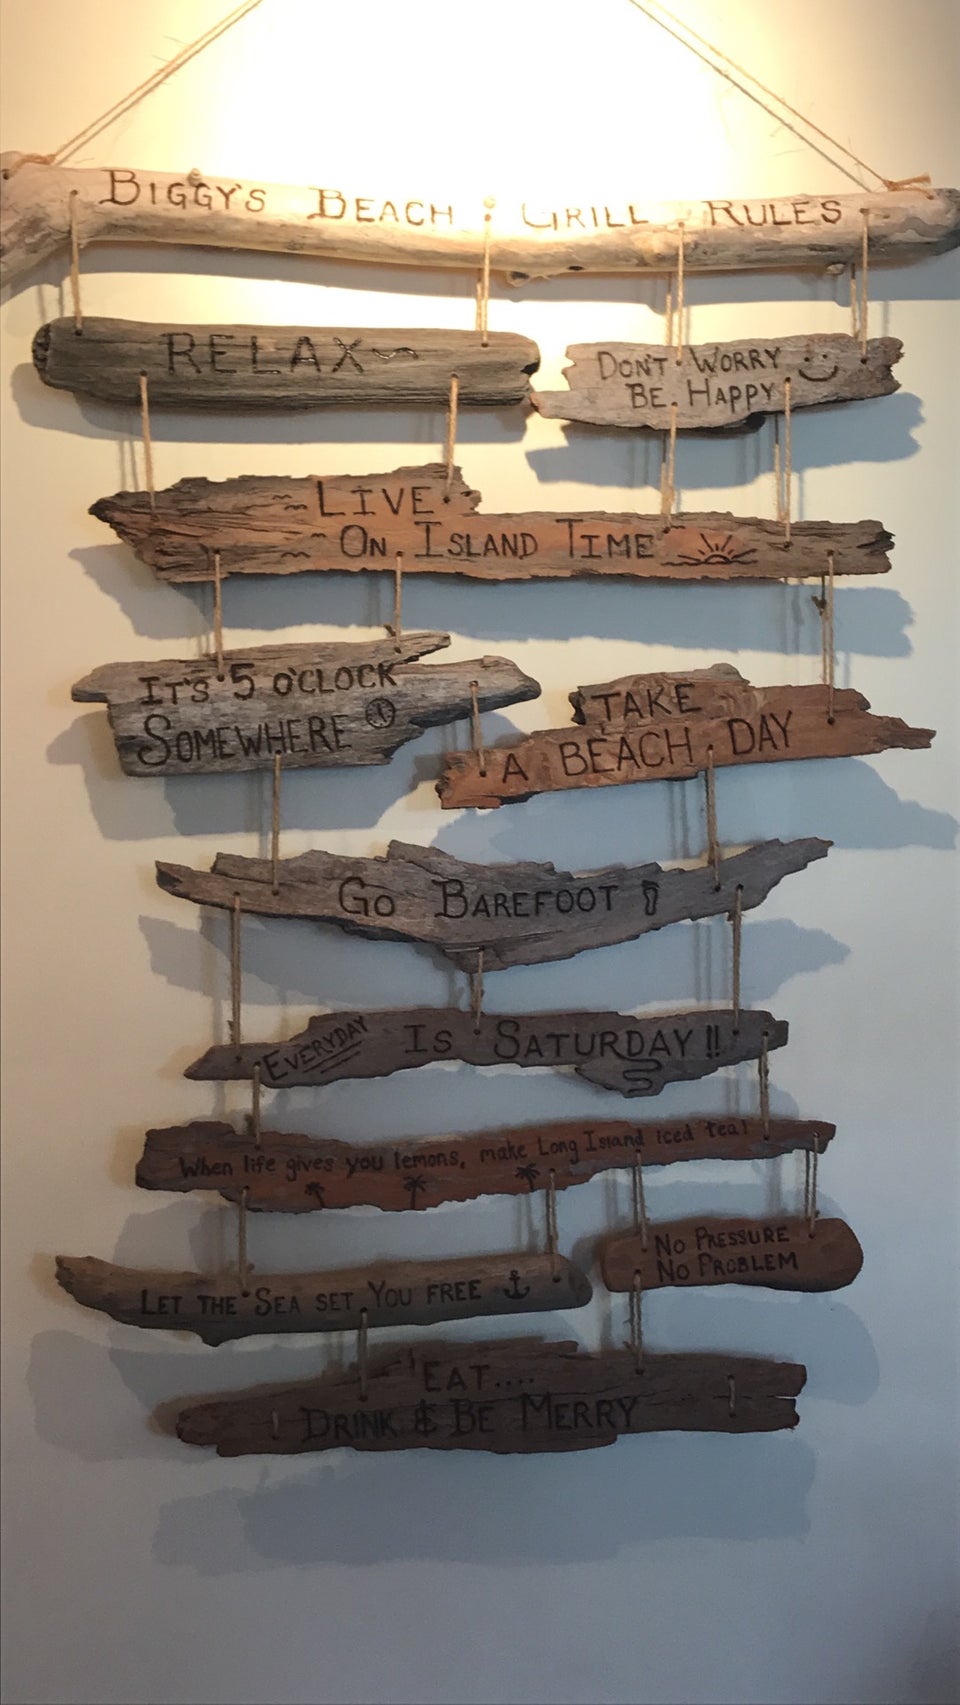 BIGGY'S BEACH GRILL RULES
RELAX
DON'T WORRY
BE HAPPY
LIVE
ON ISLAND TIME
IT'S 5 O'CLOCK
SOMEWHERE
TAKE
A BEACH DAY
GO BAREFOOT
EVERYDAY IS SATURDAY!!
When life gives you lemons, make Long Island iced tea!
LET THE SEA SET YOU FREE
NO PRESSURE
NO PROBLEM
EAT....
DRINK & BE MERRY